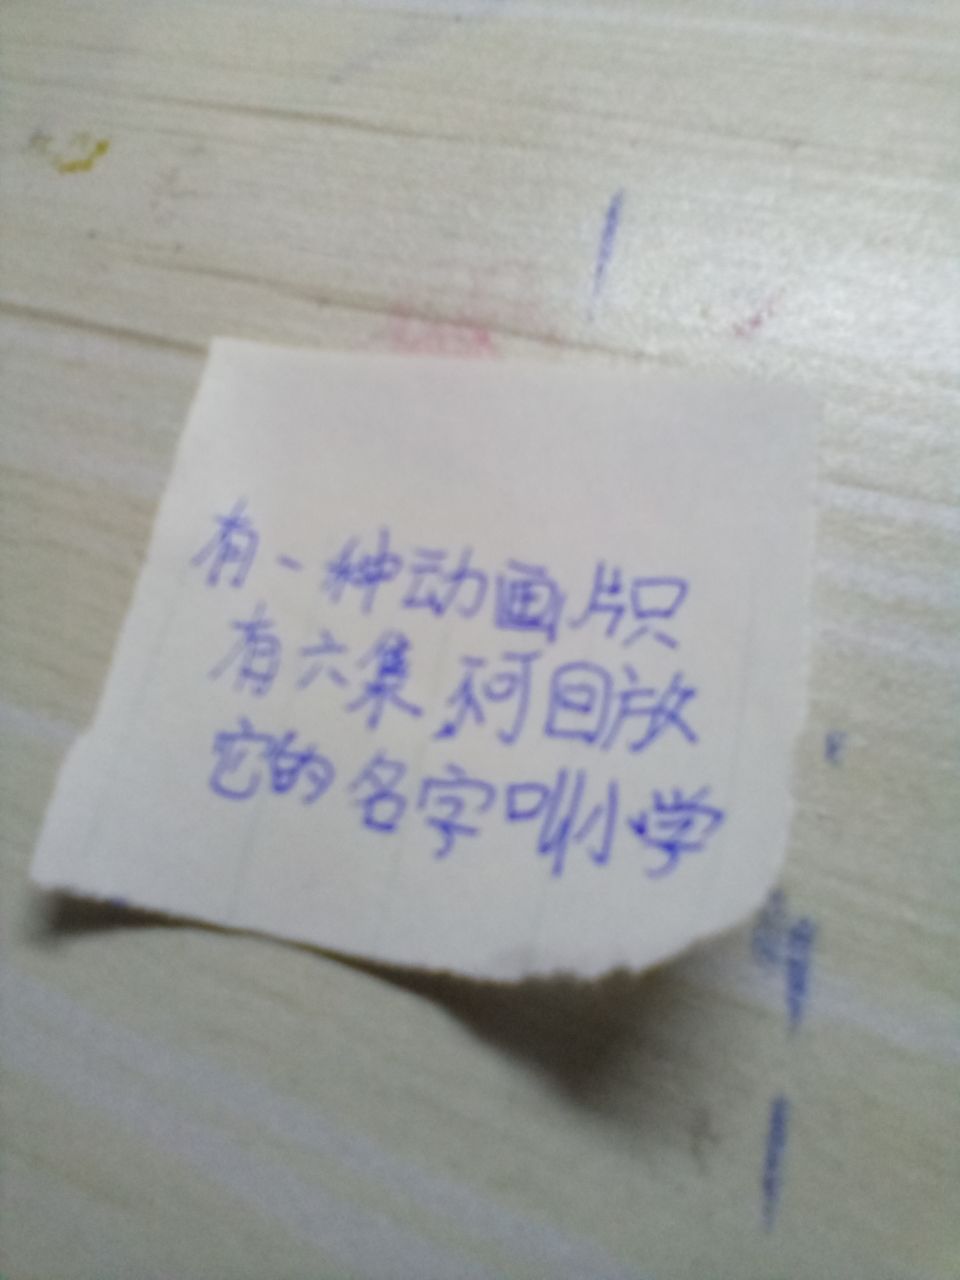 有一种动画片只
有六集不可回放
它的名字叫小学